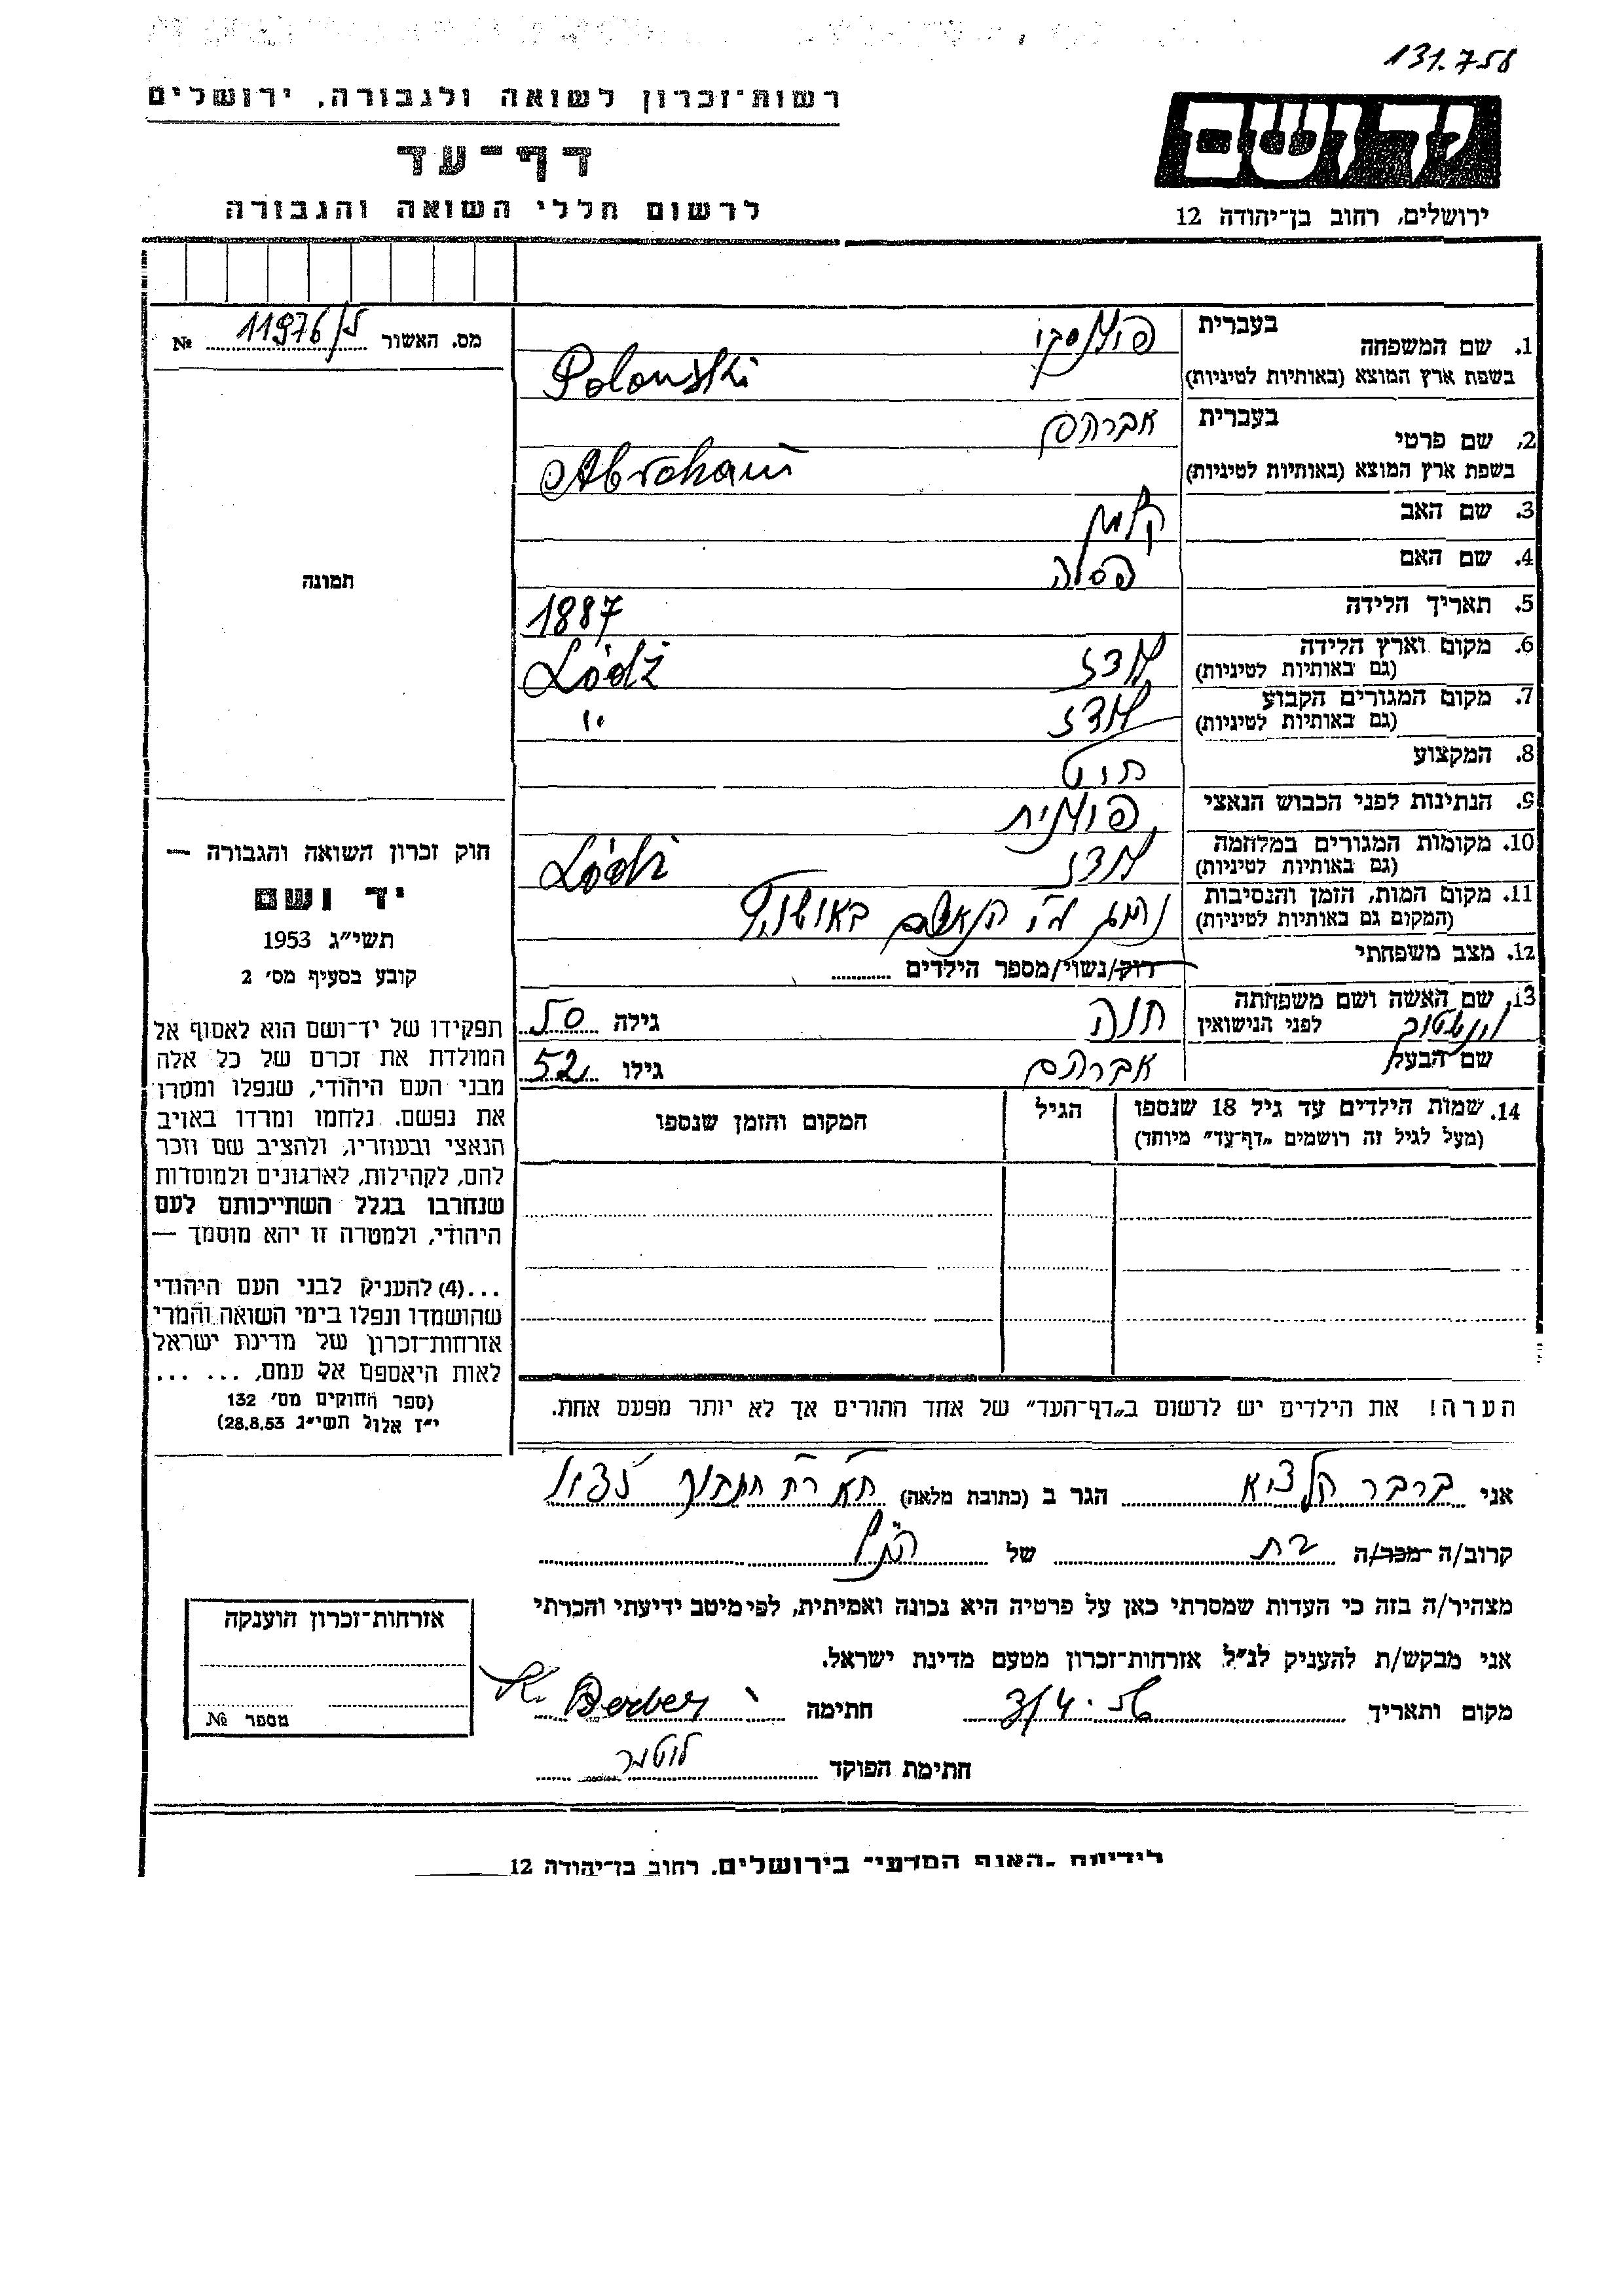 131.758
רשות־זכרון לשואה ולגבורה, ירושלים
יד ושם
דף־עד
לרשום חללי השואה והגבורה
ירושלים, רחוב בן־יהודה 12
מס. האשור 11976/ל №
1. שם המשפחה בעברית פולנסקי
בשפת ארץ המוצא (באותיות לטיניות) Polanski
2. שם פרטי בעברית אברהם
בשפת ארץ המוצא (באותיות לטיניות) Abraham
3. שם האב קלמן
4. שם האם פסלה
תמונה
5. תאריך הלידה 1887
6. מקום וארץ הלידה לודז Łódź
(גם באותיות לטיניות)
7. מקום המגורים הקבוע לודז "
(גם באותיות לטיניות)
8. המקצוע חוט
9. הנתינות לפני הכבוש הנאצי פולנית
10. מקומות המגורים במלחמה לודז Łódź
(גם באותיות לטיניות)
11. מקום המות, הזמן והנסיבות נהרג ע"י הנאצים באושויץ
(המקום גם באותיות לטיניות)
12. מצב משפחתי
רוק/נשוי/מספר הילדים
13. שם האשה ושם משפחתה חנה גילה 50
לפני הנישואין
שם הבעל אברהם גילו 52
14. שמות הילדים עד גיל 18 שנספו הגיל המקום והזמן שנספו
(מעל לגיל זה רושמים "דף־עד" מיוחד)
הערה! את הילדים יש לרשום ב"דף־העד" של אחד ההורים אך לא יותר מפעם אחת.
חוק זכרון השואה והגבורה —
יד ושם
תשי"ג 1953
קובע בסעיף מס׳ 2
תפקידו של יד־ושם הוא לאסוף אל
המולדת את זכרם של כל אלה
מבני העם היהודי, שנפלו ומסרו
את נפשם, נלחמו ומרדו באויב
הנאצי ובעוזריו, ולהציב שם וזכר
להם, לקהילות, לארגונים ולמוסדות
שנחרבו בגלל השתייכותם לעם
היהודי, ולמטרה זו יהא מוסמך —
...(4) להעניק לבני העם היהודי
שהושמדו ונפלו בימי השואה והמרי
אזרחות־זכרון של מדינת ישראל
לאות היאספם אל עמם, ... ...
(ספר החוקים מס׳ 132
י"ז אלול תשי"ג 28.8.53)
אני ברבר הגר ב (כתובת מלאה)
קרוב/ה מכר/ה בת של הנ"ל
מצהיר/ה בזה כי העדות שמסרתי כאן על פרטיה היא נכונה ואמיתית, לפי מיטב ידיעתי והכרתי
אני מבקש/ת להעניק לנ"ל אזרחות־זכרון מטעם מדינת ישראל.
מקום ותאריך 3/4 חתימה Berber
חתימת הפוקד
אזרחות־זכרון הוענקה
מספר №
לידיעת "האגף המדעי" בירושלים, רחוב בן־יהודה 12